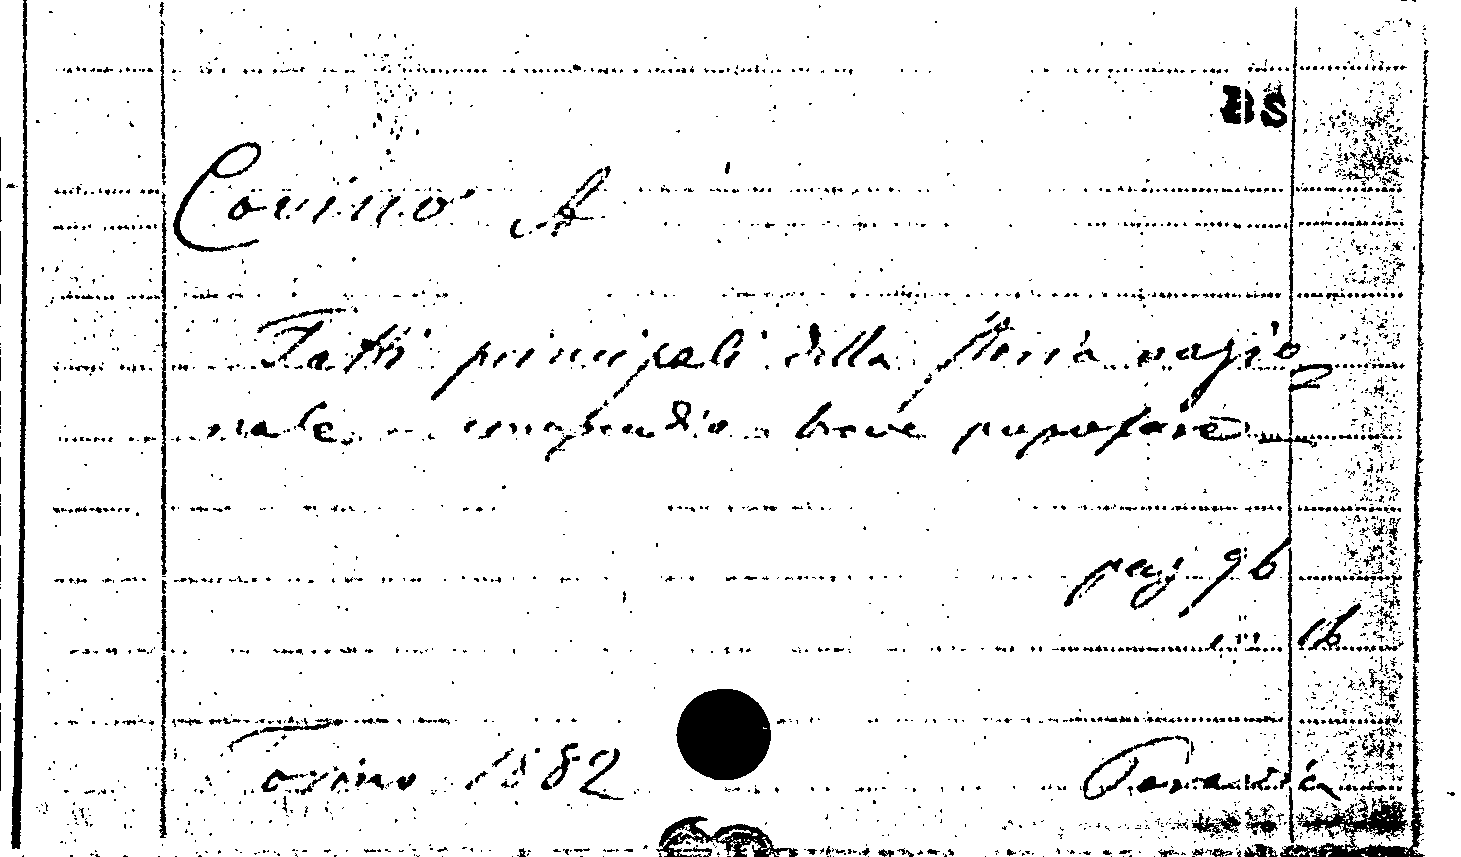 BS
Covino A
Fatti principali della storia nazio
nale - compendio - breve popolare
pag 96
in 16
Torino 1882 Paravia